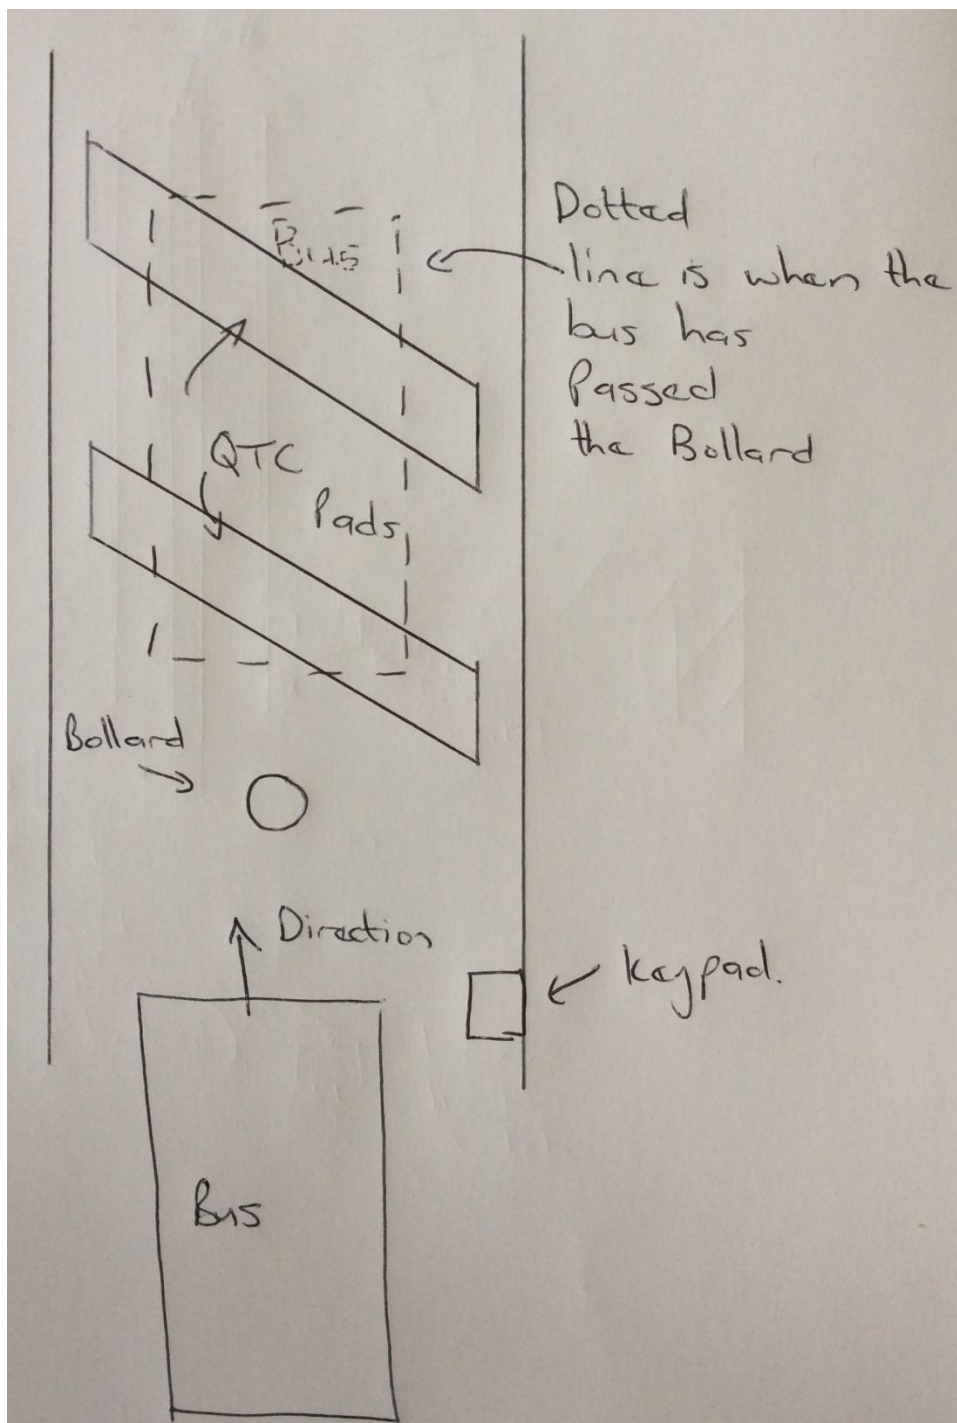 Bus
Dotted
line is when the
bus has
Passed
the Bollard
QTC
Pads
Bollard
Direction
Keypad.
Bus